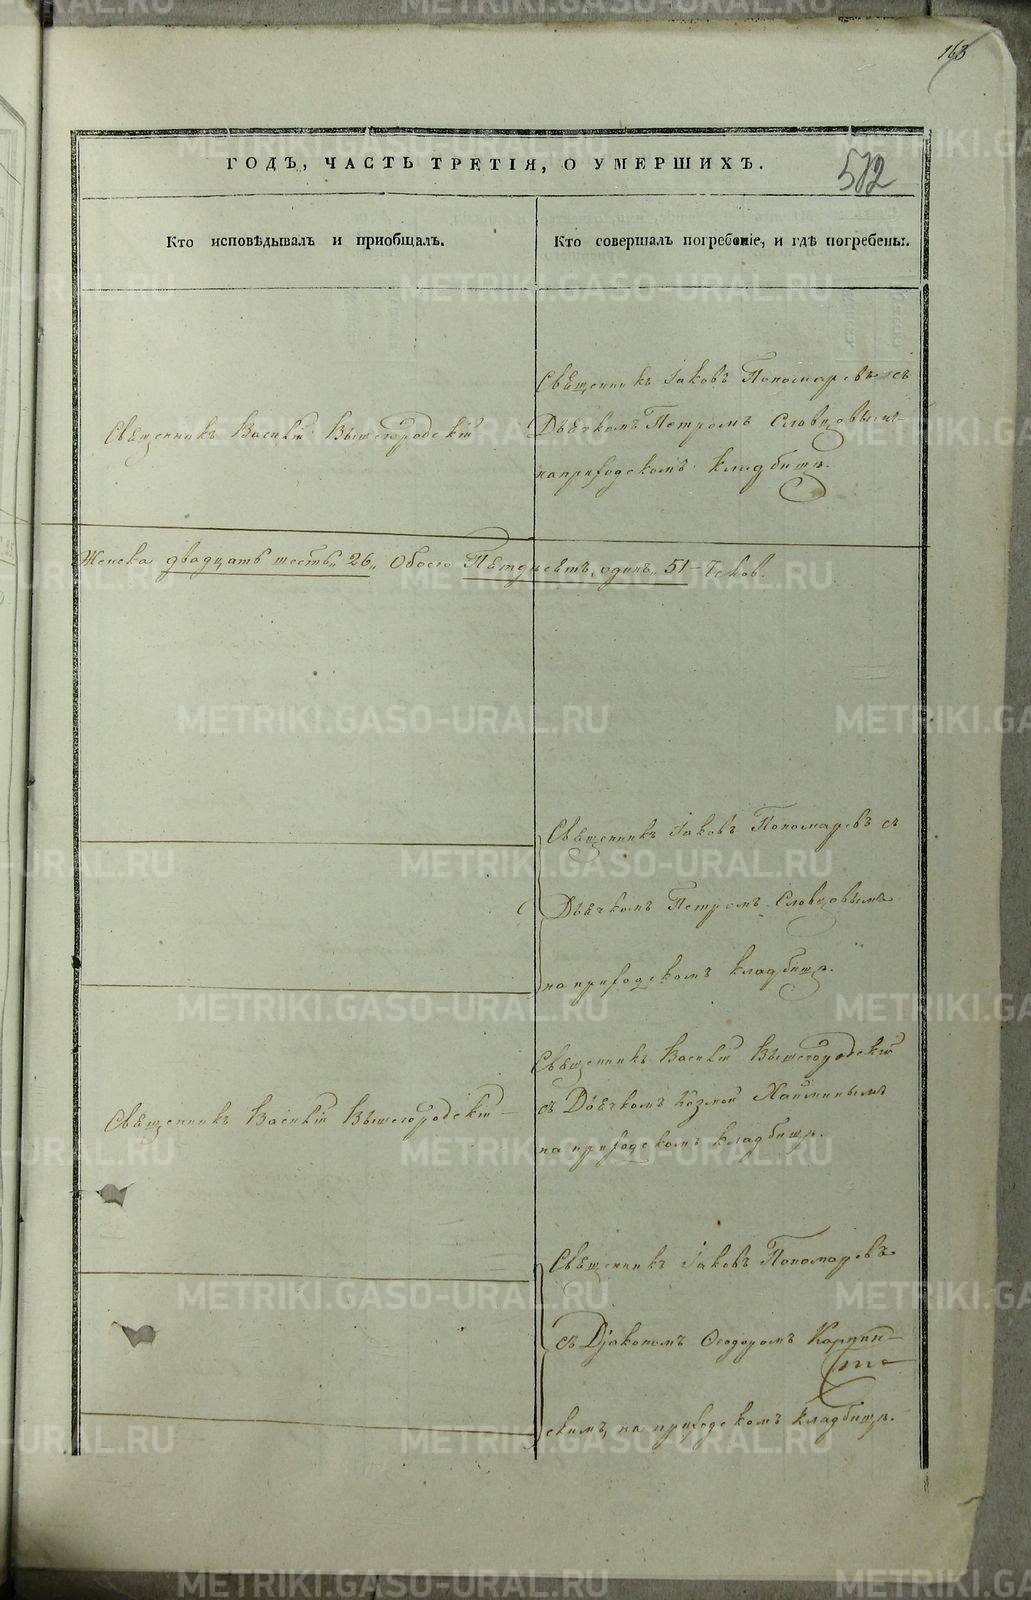 163
ГОДЪ, ЧАСТЬ ТРЕТІЯ, О УМЕРШИХЪ.
502
Кто исповѣдывалъ и пріобщалъ.
Кто совершалъ погребеніе, и гдѣ погребены.
Священникъ Іаковъ Пономаревъ съ
Священникъ Василій Вышегородскій
Дьячкомъ Петромъ Словцовымъ
на приходскомъ кладбищѣ.
Женска двадцать шесть „26„ Обоего Пятдесятъ одинъ „51
Священникъ Іаковъ Пономаревъ съ
Дьячкомъ Петромъ Словцовымъ
на приходскомъ кладбищѣ.
Священникъ Василій Вышегородскій
Священникъ Василій Вышегородскій
съ Дьячкомъ Козмой
на приходскомъ кладбищѣ.
Священникъ Іаковъ Пономаревъ
съ Діакономъ Ѳеодоромъ Карпин-
скимъ, на приходскомъ кладбищѣ.
METRIKI.GASO-URAL.RU